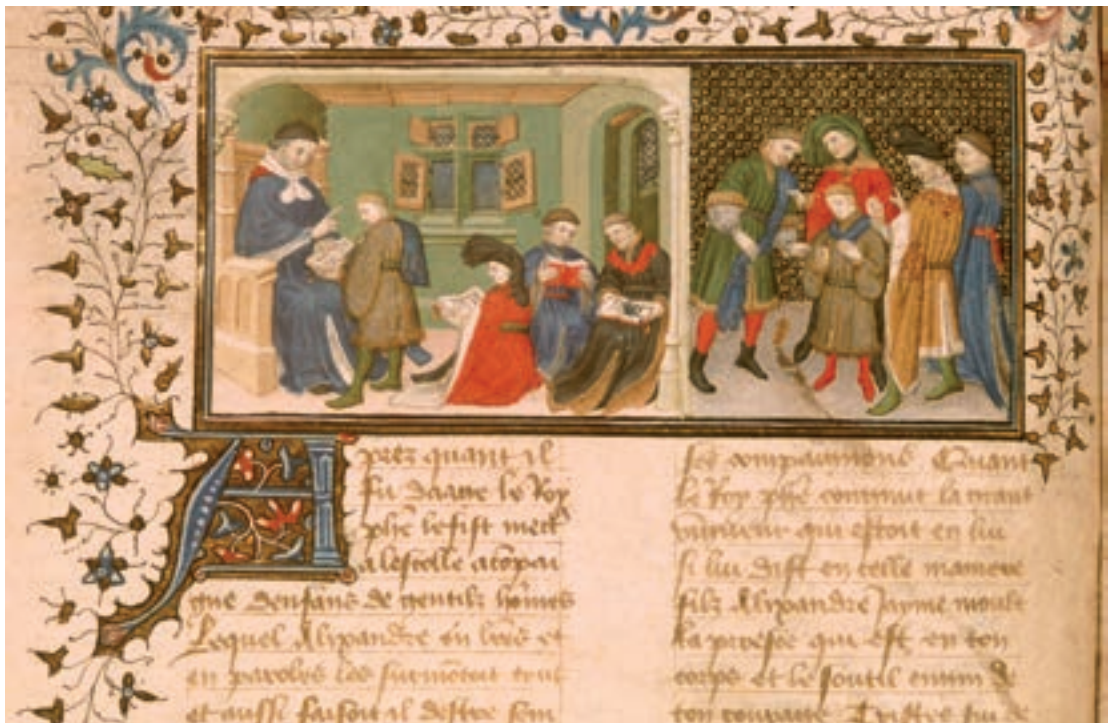 Aprez quant il
fu daage le Roy
phe le fist mectre
a lescolle acompai
gne denfans de gentilz hommes
Lequel Alixandre en livres et
en paroles les surmontoit tous
et aussi faisoit il destre sem
ses compaignons Quant
le Roy phe congnut la grant
qui estoit en lui
si lui dist en celle maniere
filz Alixandre Jayme moult
la proesse qui est en ton
corps et le soutil engin de
ton courage